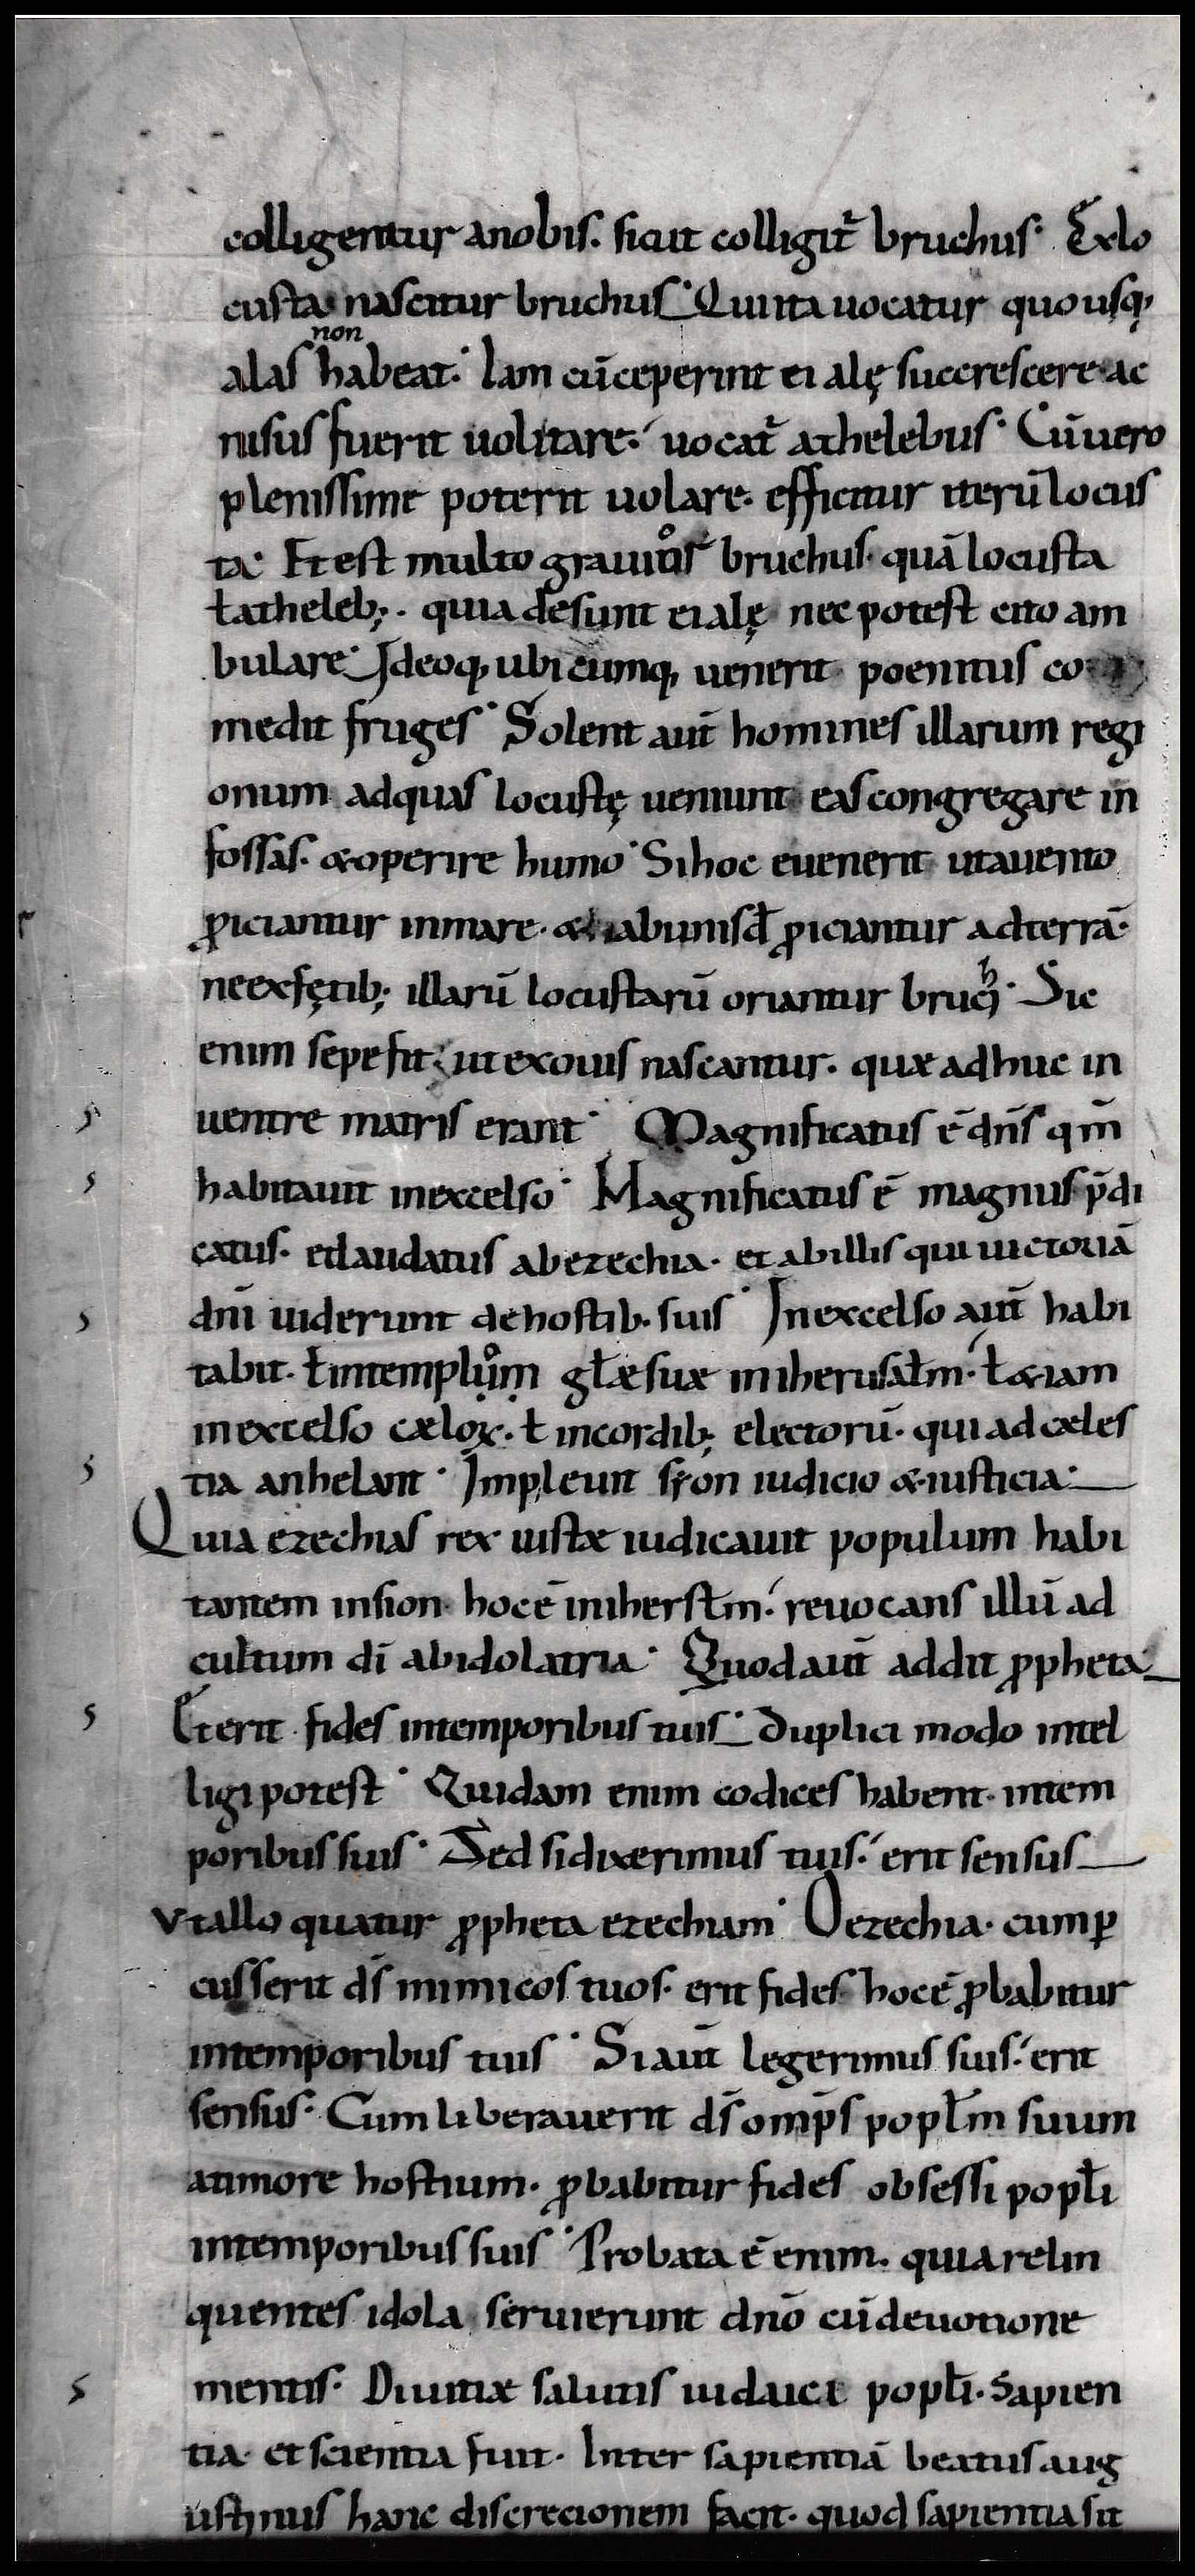 colligentur anobis. sicut colligit̄ bruchus. Exlo
custa nascitur bruchus. Quinta uocatur quousq;
alas non habeat. Iam cū ceperint ei alę succrescere ac
nisus fuerit uolitare. uocat̄ athelebus. Cū uero
plenissime poterit uolare. efficitur iterū locus
ta. Et est multo grauioͦr bruchus. quā locusta
ł atheleb;. quia desunt ei alę nec potest cito am
bulare. Ideoq; ubicumq; uenerit poenitus co
medit fruges. Solent aut̄ homines illarum regi
onum adquas locustę ueniunt eas congregare in
fossas. & operire humo. Si hoc euenerit ut auento
ꝓiciantur inmare. & abunisđ ꝓiciantur adterrā.
ne exfętib; illarū locustarū oriantur brucͪi. Sic
enim sepe fit. ut exouis nascantur. quæ adhuc in
uentre matris erant. Magnificatus ē dn̄s qm̄
habitauit inexcelso. Magnificatus ē magnus p̄di
catus. et laudatus abezechia. et abillis qui uictoriā
dnī uiderunt dehostib. suis. In excelso aut̄ habi
tabit. ł intemplo głæ suæ iniherusałm. ł &iam
in excelso cæloꝝ. ł incordib; electorū. qui ad cæles
tia anhelant. Impleuit syon iudicio & iusticia.
Quia ezechias rex iustæ iudicauit populum habi
tantem insion. hoc ē iniherałm. reuocans illū ad
cultum dī abidolatria. Quod aut̄ addit ꝓpheta
Et erit fides intemporibus tuis. duplici modo intel
ligi potest. Quidam enim codices habent. intem
poribus suis. Sed si dixerimus tuis. erit sensus
Vt alloquatur ꝓpheta ezechiam. O ezechia. cum ꝑ
cusserit ds̄ inimicos tuos. erit fides hoc ē ꝓbabitur
intemporibus tuis. Si aut̄ legerimus suis. erit
sensus. Cum liberauerit ds̄ omp̄s popłm suum
atimore hostium. ꝓbabitur fides obsessi popłi
intemporibus suis. Probata ē enim. quia relin
quentes idola seruierunt dn̄o cū deuotione
mentis. Diuitiæ salutis iudaici popłi. sapien
tia et scientia fuit. Inter sapientiā beatus aug
ustinus hanc discrecionem facit. quod sapientia sit